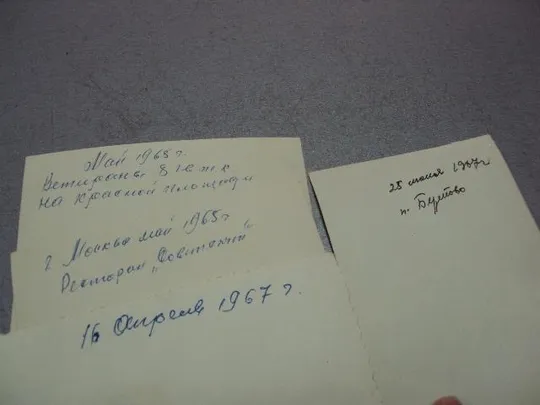 Май 1965 г.
Ветераны 8 гв. тк
на Красной площади
г Москва май 1965 г
Ресторан „Советский"
16 Апреля 1967 г.
25 июня 1967 г
п. Бутово